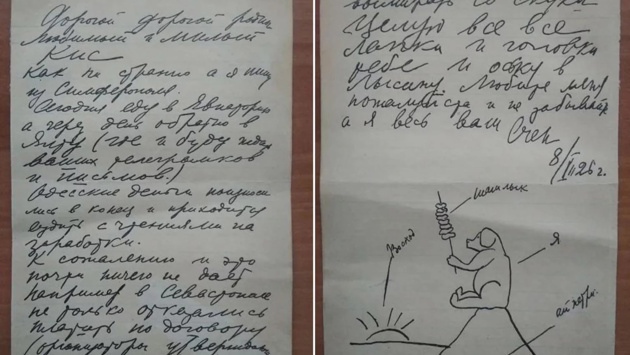 Дорогой дорогой родной
Любимый и милый
Кис
Как ни странно а я пишу
из Симферополя.
Сегодня еду в Евпаторию
а через день обратно в
Ялту (где и буду ждать
ваших телеграммков
и письмов.)
Одесские деньги поизноси
лись в конец и приходится
ездить с чтениями на
заработки.
К сожалению и это
почти ничего не дает
Например в Севастополе
не только отказались
платить по договору
(организаторы утверждают
вымирать со скуки
Целую все все
лапки и головки
тебе и оську в
лысину. Любите меня
пожалуйста и не забывайте
а я весь ваш Счен
8/VII 26 г.
шашлык
Восход
Я
ай петри.